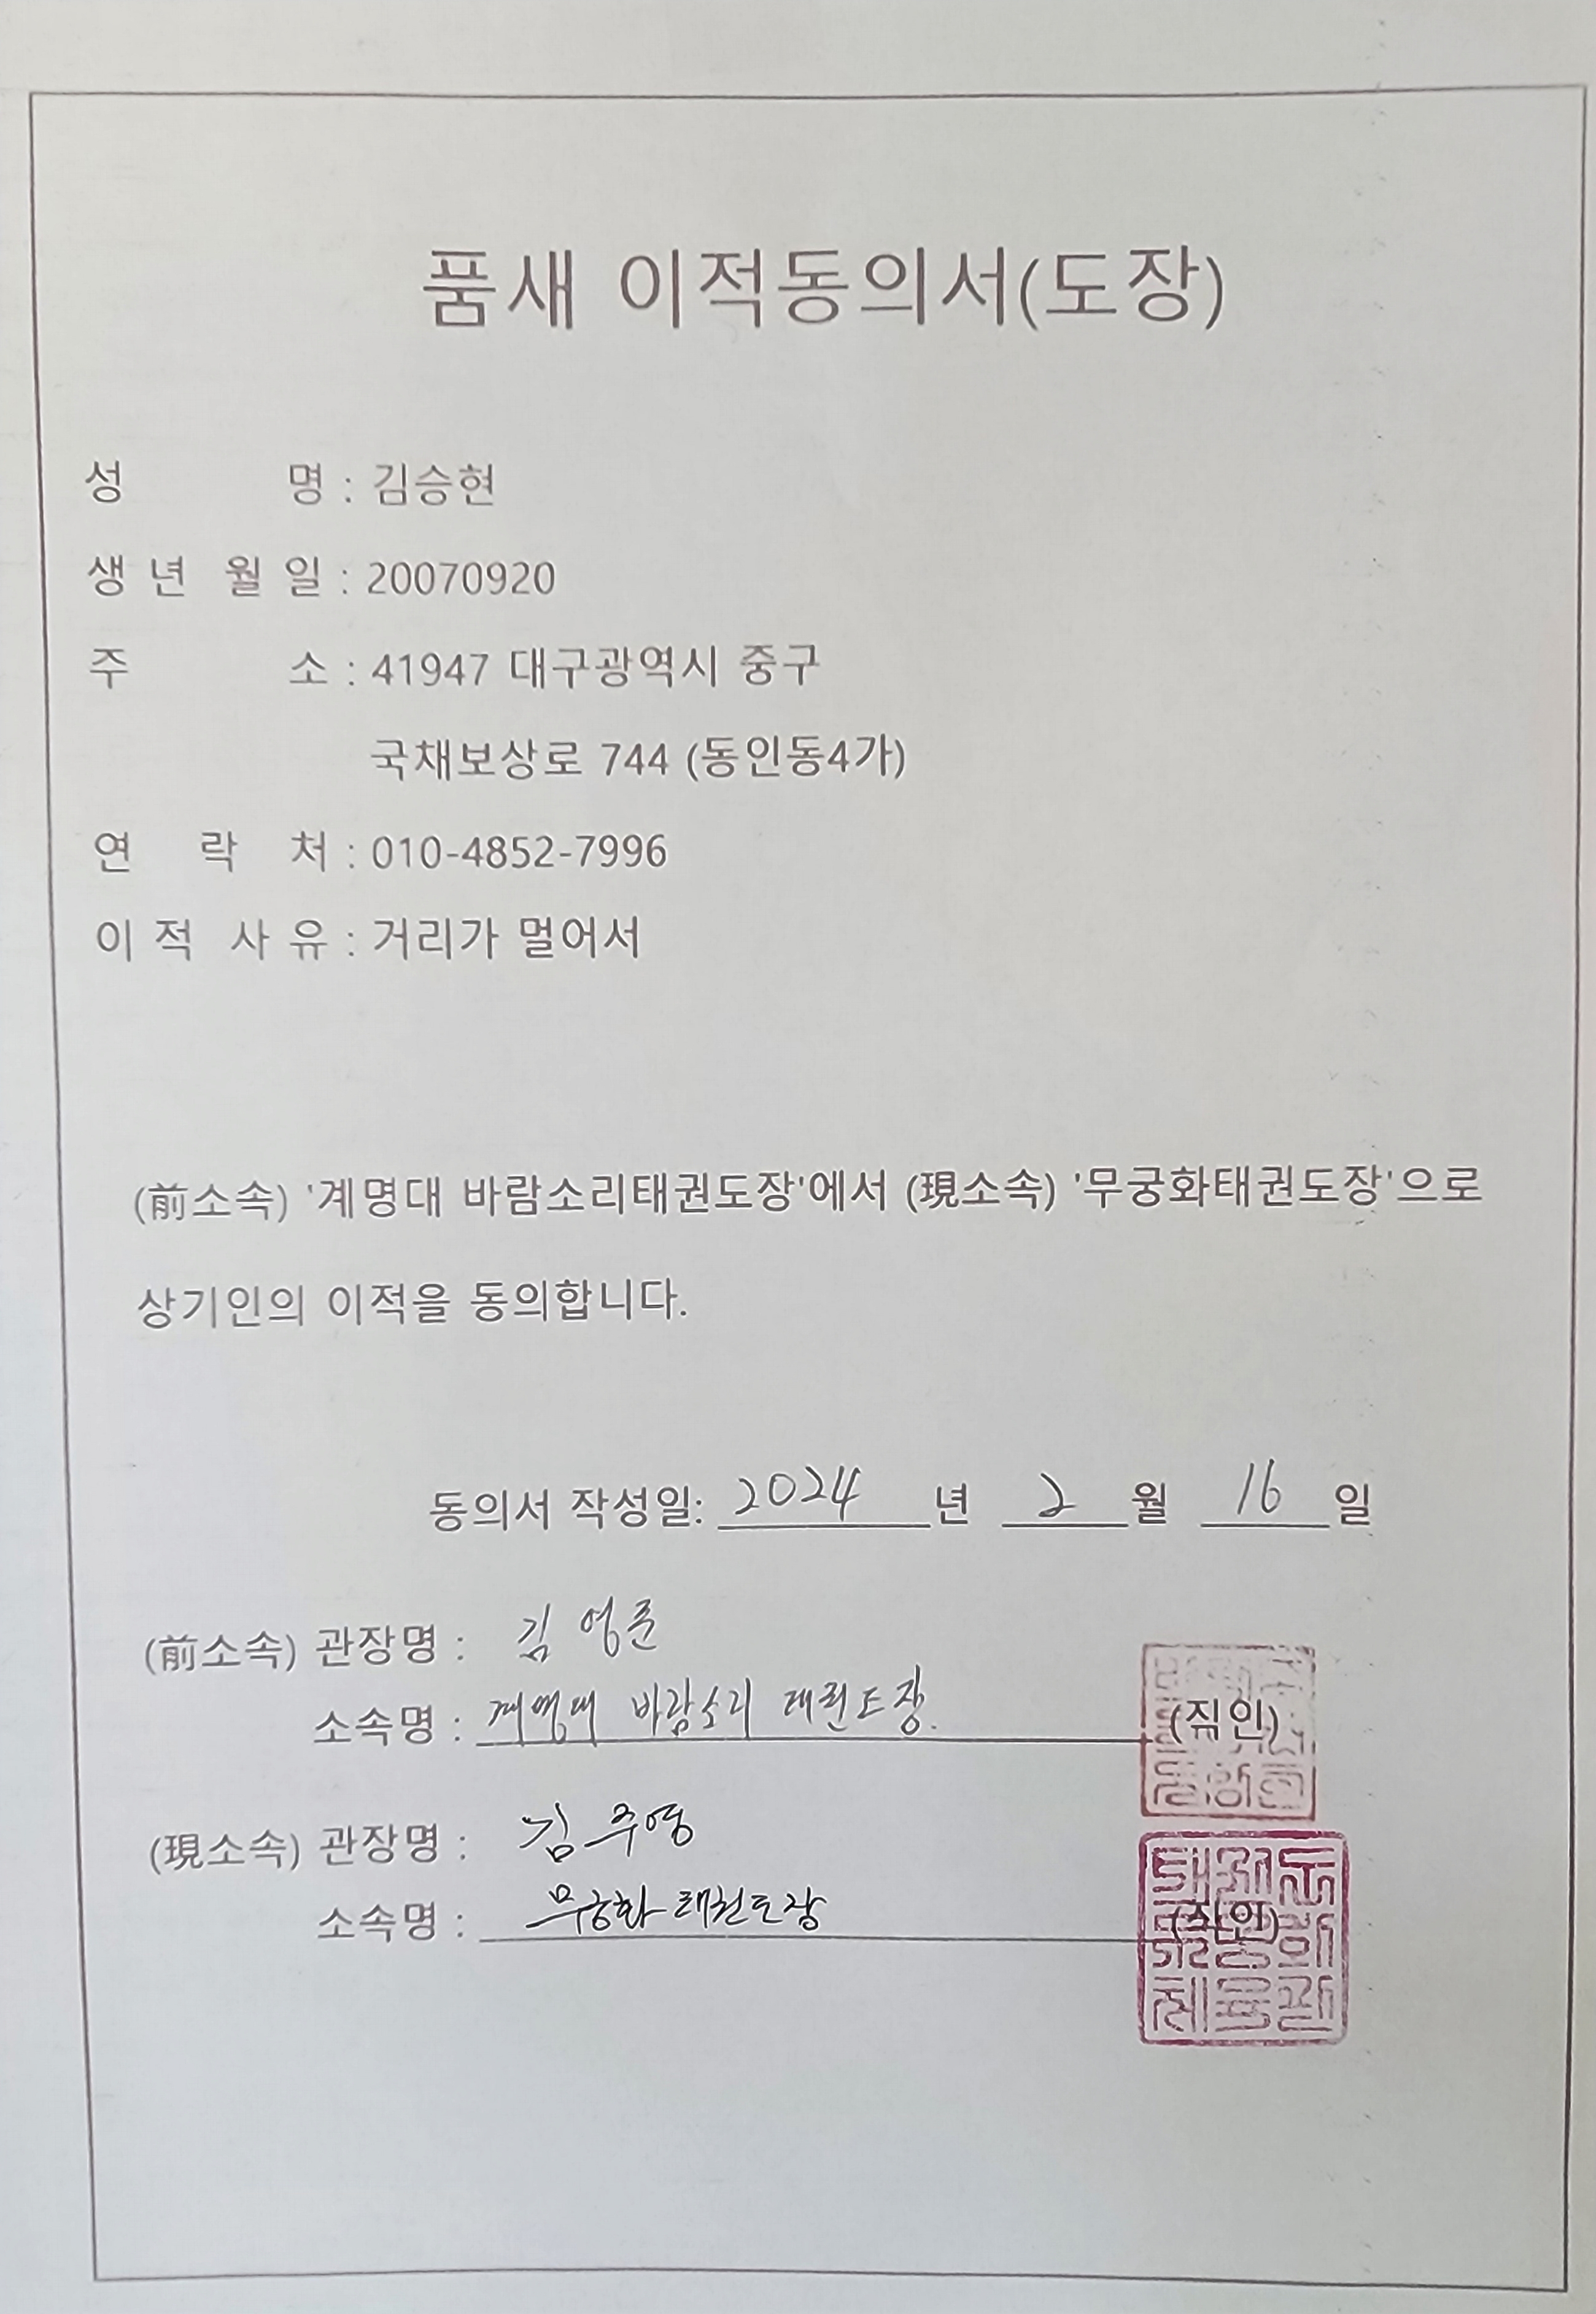 품새 이적동의서(도장)
성 명 : 김승현
생 년 월 일 : 20070920
주 소 : 41947 대구광역시 중구
국채보상로 744 (동인동4가)
연 락 처 : 010-4852-7996
이 적 사 유 : 거리가 멀어서
(前소속) '계명대 바람소리태권도장'에서 (現소속) '무궁화태권도장'으로
상기인의 이적을 동의합니다.
동의서 작성일: 2024 년 2 월 16 일
(前소속) 관장명 : 김영준
소속명 : 계명대 바람소리 태권도장. (직인)
(現소속) 관장명 : 김주영
소속명 : 무궁화태권도장 (직인)